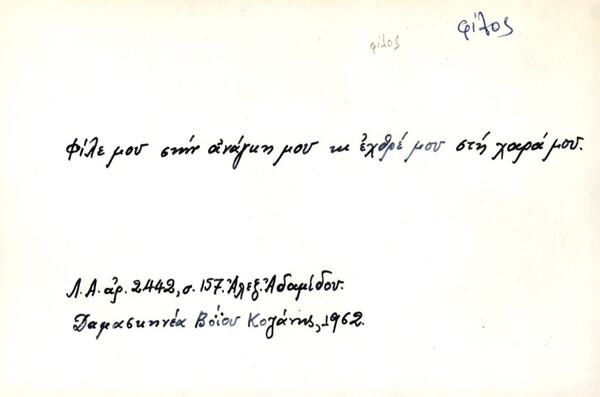 φίλος
φίλος
Φίλε μου στήν ἀνάγκη μου κι ἐχθρέ μου στή χαρά μου.
Λ.Α. ἀρ. 2442, σ. 157. Ἀλεξ. Ἀδαμίδου.
Δαμασκηνέα Βοΐου Κοζάνης, 1962.